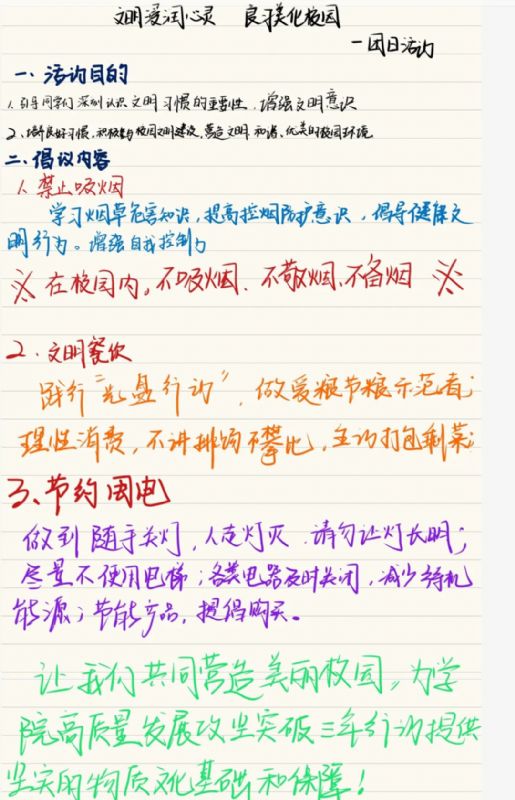 文明浸润心灵 良习美化校园
一团日活动
一、活动目的
1、引导同学们深刻认识文明习惯的重要性,增强文明意识
2、培养良好习惯,积极参与校园文明建设,营造文明、和谐、优美的校园环境。
二、倡议内容
1、禁止吸烟
学习烟草危害知识,提高控烟防护意识,倡导健康文
明行为。增强自我控制力
※ 在校园内,不吸烟、不敬烟、不劝烟 ※
2、文明餐饮
践行“光盘行动”,做爱粮节粮示范者;
理性消费,不讲排场不攀比,主动打包剩菜;
3、节约用电
做到随手关灯,人走灯灭,请勿让灯长明;
尽量不使用电梯;各类电器及时关闭,减少待机
能源;节能产品,提倡购买。
让我们共同营造美丽校园,为学
院高质量发展攻坚突破三年行动提供
坚实的物质文化基础和保障!